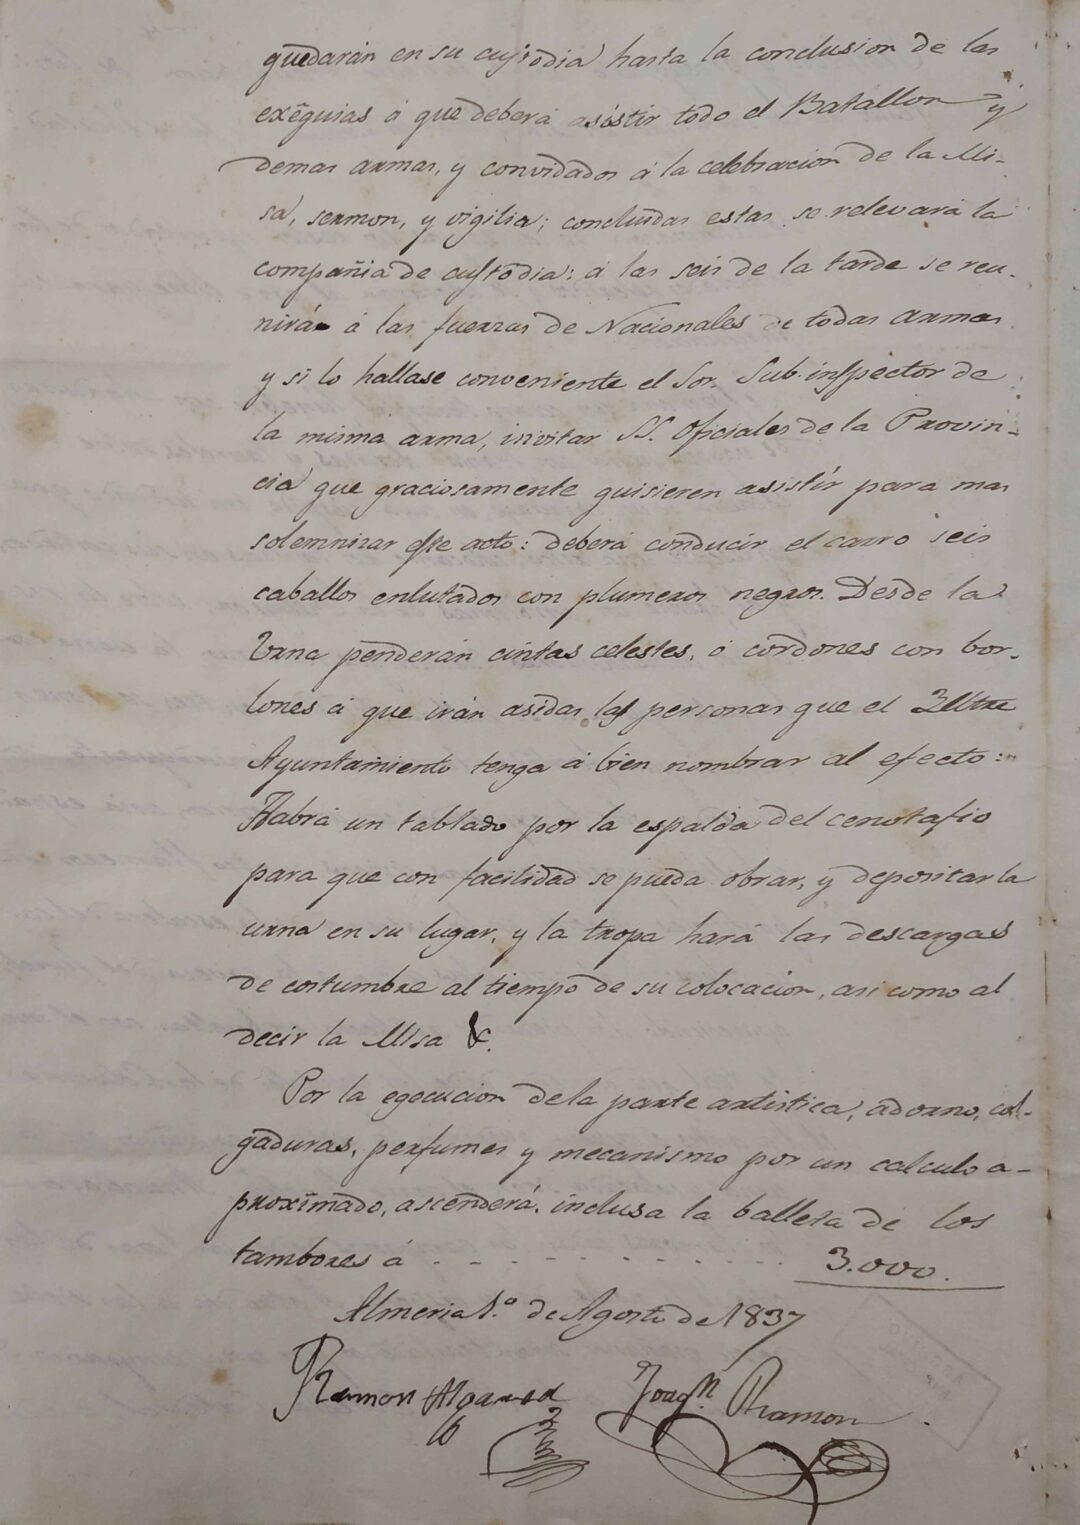 quedarán en su custodia hasta la conclusion de las
exêquias á que deberá asistir todo el Batallon y
demas armas, y convidados á la celebracion de la Mi-
sa, sermon, y vigilia; concluidas estas se relevará la
compañia de custodia: á las seis de la tarde se reu-
nirá á las fuerzas de Nacionales de todas armas
y si lo hallase conveniente el Sor. Sub-inspector de
la misma arma, invitar SS. Oficiales de la Provin-
cia que graciosamente quisieren asistir para mas
solemnizar este acto: deberá conducir el carro seis
caballos enlutados con plumeros negros. Desde la
Urna penderán cintas celestes, ó cordones con bor-
lones á que irán asidas las personas que el Illtre
Ayuntamiento tenga á bien nombrar al efecto:
Habrá un tablado por la espalda del cenotafio
para que con facilidad se pueda obrar, y depositar la
urna en su lugar, y la tropa hará las descargas
de costumbre al tiempo de su colocacion, asi como al
decir la Misa &.
Por la egecucion de la parte artistica, adorno, col-
gaduras, perfumes y mecanismo por un calculo a-
proximado, ascenderá, inclusa la balleta de los
tambores á - - - - - - - - - - - 3.000.
Almeria 1.º de Agosto de 1837
Ramon Algarra Joaqn. Ramon